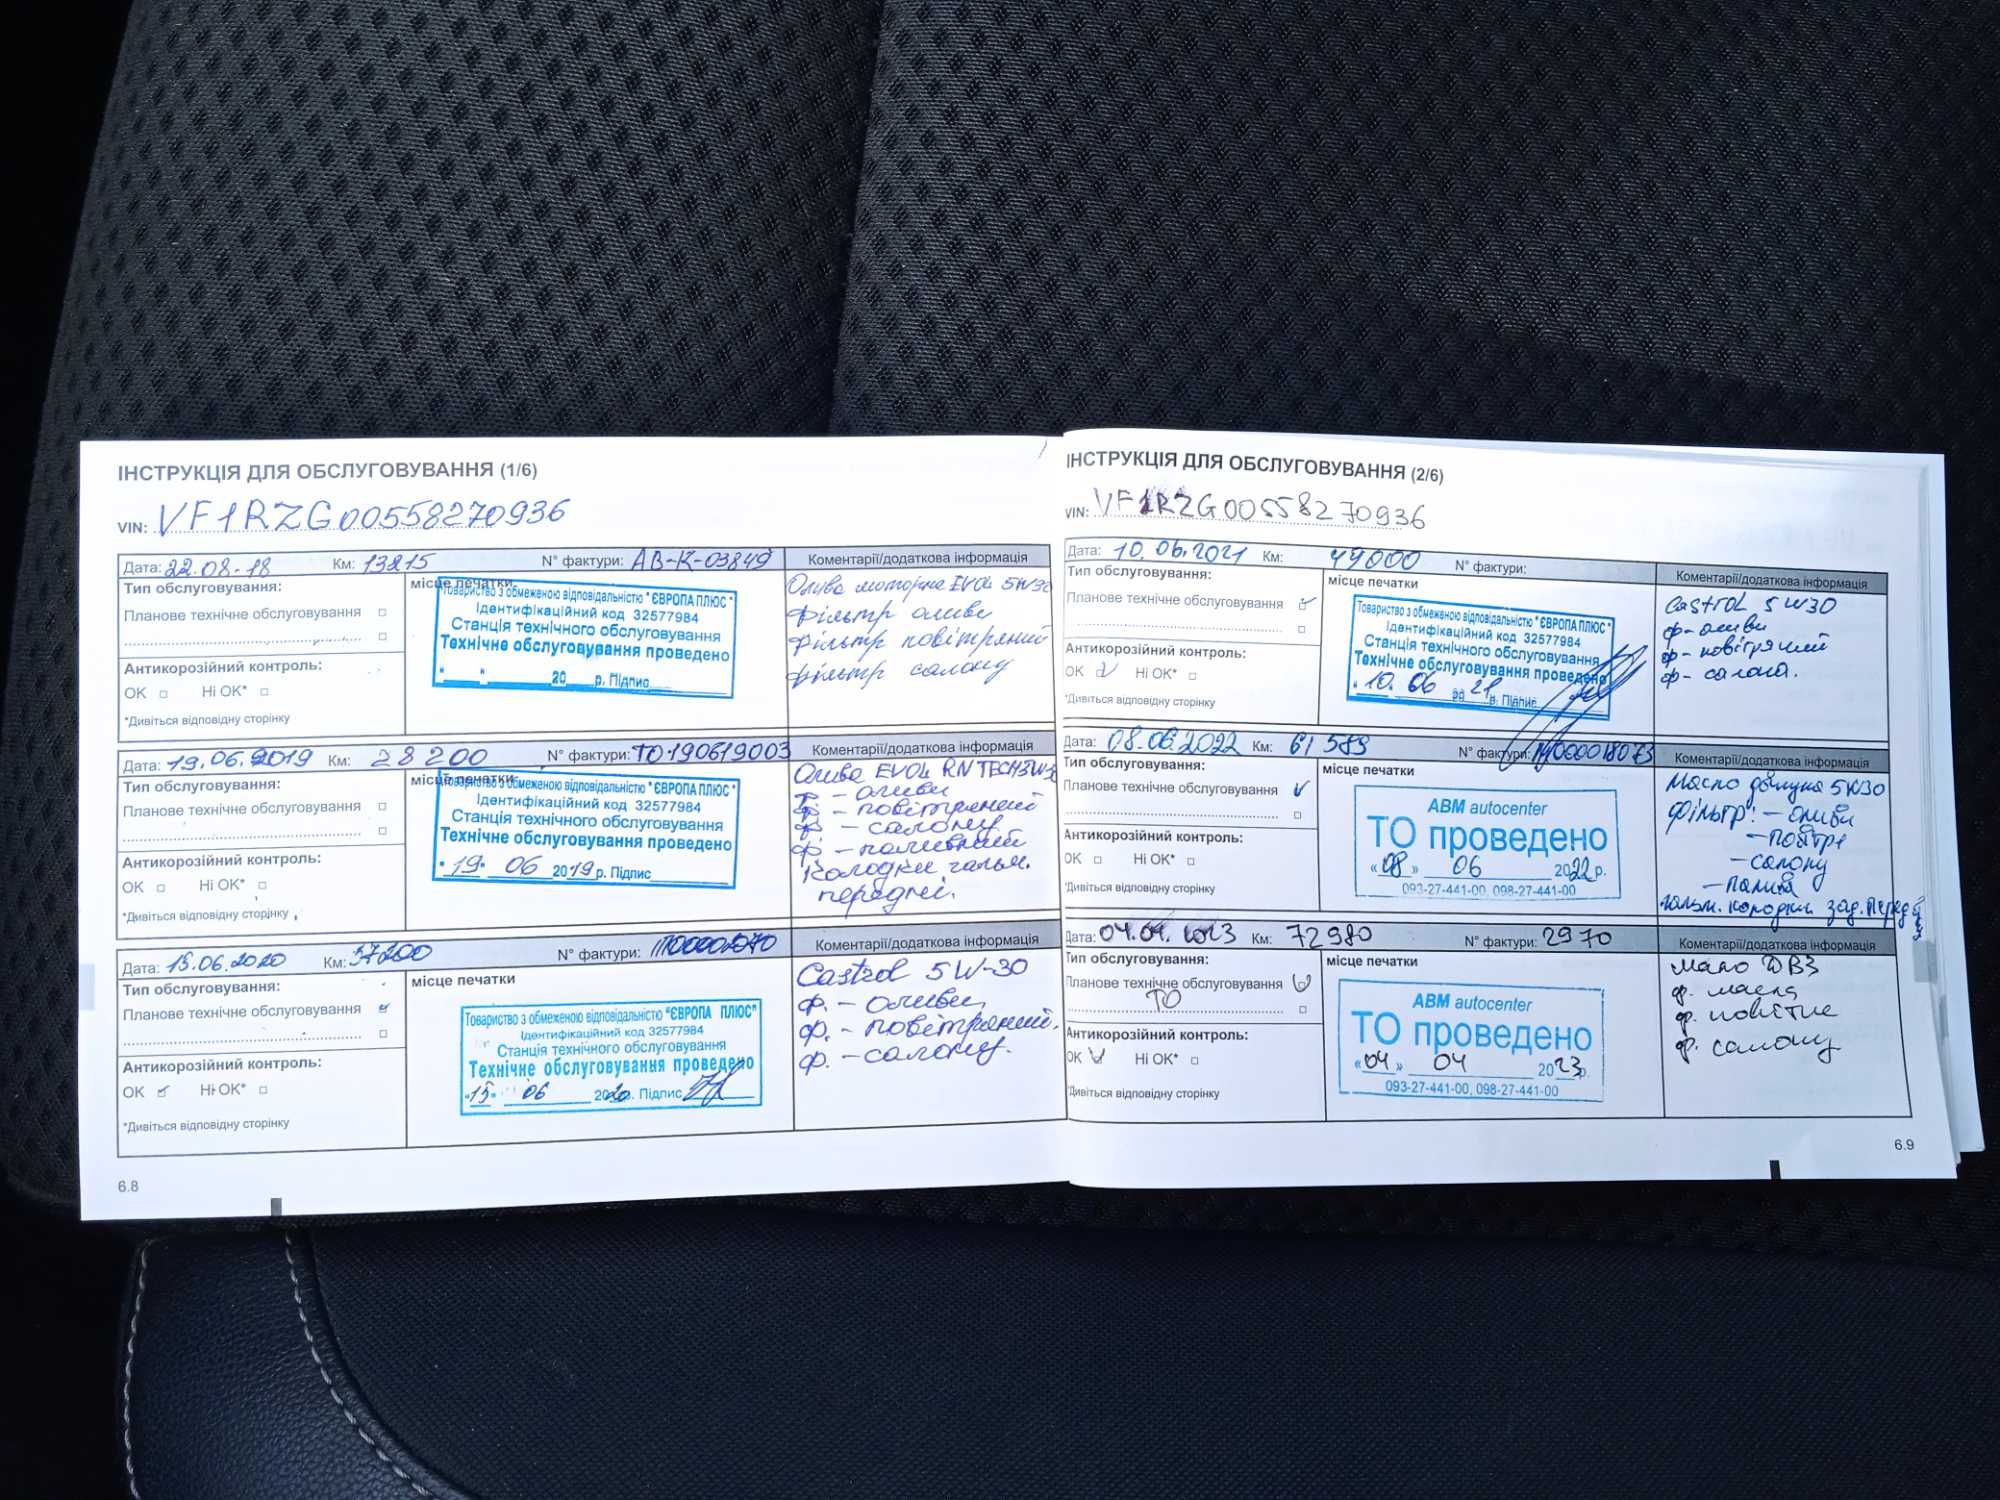 ІНСТРУКЦІЯ ДЛЯ ОБСЛУГОВУВАННЯ (1/6)
VIN: VF1RZG00558270936
Дата: 22.08.18 Км: 13215 N° фактури: АВ-К-03849 Коментарії/додаткова інформація
Тип обслуговування:
Планове технічне обслуговування
Антикорозійний контроль:
OK Ні OK*
*Дивіться відповідну сторінку
місце печатки
Товариство з обмеженою відповідальністю "ЄВРОПА ПЛЮС"
Ідентифікаційний код 32577984
Станція технічного обслуговування
Технічне обслуговування проведено
" " 20 р. Підпис
Олива моторна EVOL 5W30
Фільтр оливи
Фільтр повітряний
фільтр салону
Дата: 19.06.2019 Км: 28200 N° фактури: ТО190619003 Коментарії/додаткова інформація
Тип обслуговування:
Планове технічне обслуговування
Антикорозійний контроль:
OK Ні OK*
*Дивіться відповідну сторінку
місце печатки
Товариство з обмеженою відповідальністю "ЄВРОПА ПЛЮС"
Ідентифікаційний код 32577984
Станція технічного обслуговування
Технічне обслуговування проведено
"19" 06 2019 р. Підпис
Олива EVOL RN TECH
ф - оливи
ф - повітряний
ф - салону
ф - паливний
Колодки гальм.
передні.
Дата: 15.06.2020 Км: 37200 N° фактури: Коментарії/додаткова інформація
Тип обслуговування:
Планове технічне обслуговування
Антикорозійний контроль:
OK Ні OK*
*Дивіться відповідну сторінку
місце печатки
Товариство з обмеженою відповідальністю "ЄВРОПА ПЛЮС"
Ідентифікаційний код 32577984
Станція технічного обслуговування
Технічне обслуговування проведено
"15" 06 2020р. Підпис
Castrol 5W-30
ф. - оливи
ф. - повітряний.
ф. - салону.
6.8
ІНСТРУКЦІЯ ДЛЯ ОБСЛУГОВУВАННЯ (2/6)
VIN: VF1RZG00558270936
Дата: 10.06.2021 Км: 49000 N° фактури: Коментарії/додаткова інформація
Тип обслуговування:
Планове технічне обслуговування
Антикорозійний контроль:
OK Ні OK*
*Дивіться відповідну сторінку
місце печатки
Товариство з обмеженою відповідальністю "ЄВРОПА ПЛЮС"
Ідентифікаційний код 32577984
Станція технічного обслуговування
Технічне обслуговування проведено
"10. 06 20 21 р. Підпис
Castrol 5W30
ф - оливи
ф - повітряний
ф - салона.
Дата: 08.06.2022 Км: 61583 N° фактури: Коментарії/додаткова інформація
Тип обслуговування:
Планове технічне обслуговування
Антикорозійний контроль:
OK Ні OK*
*Дивіться відповідну сторінку
місце печатки
ABM autocenter
ТО проведено
«08» 06 2022р.
093-27-441-00, 098-27-441-00
Масло двигуна 5W30
Фільтр: - оливи
- повітря
- салону
- палива
гальм. колодки зад. перед
Дата: 04.04.2023 Км: 72980 N° фактури: 2970 Коментарії/додаткова інформація
Тип обслуговування:
Планове технічне обслуговування
ТО
Антикорозійний контроль:
OK Ні OK*
*Дивіться відповідну сторінку
місце печатки
ABM autocenter
ТО проведено
«04» 04 2023р.
093-27-441-00, 098-27-441-00
ДВЗ
ф. масла
ф.
ф. салону
6.9